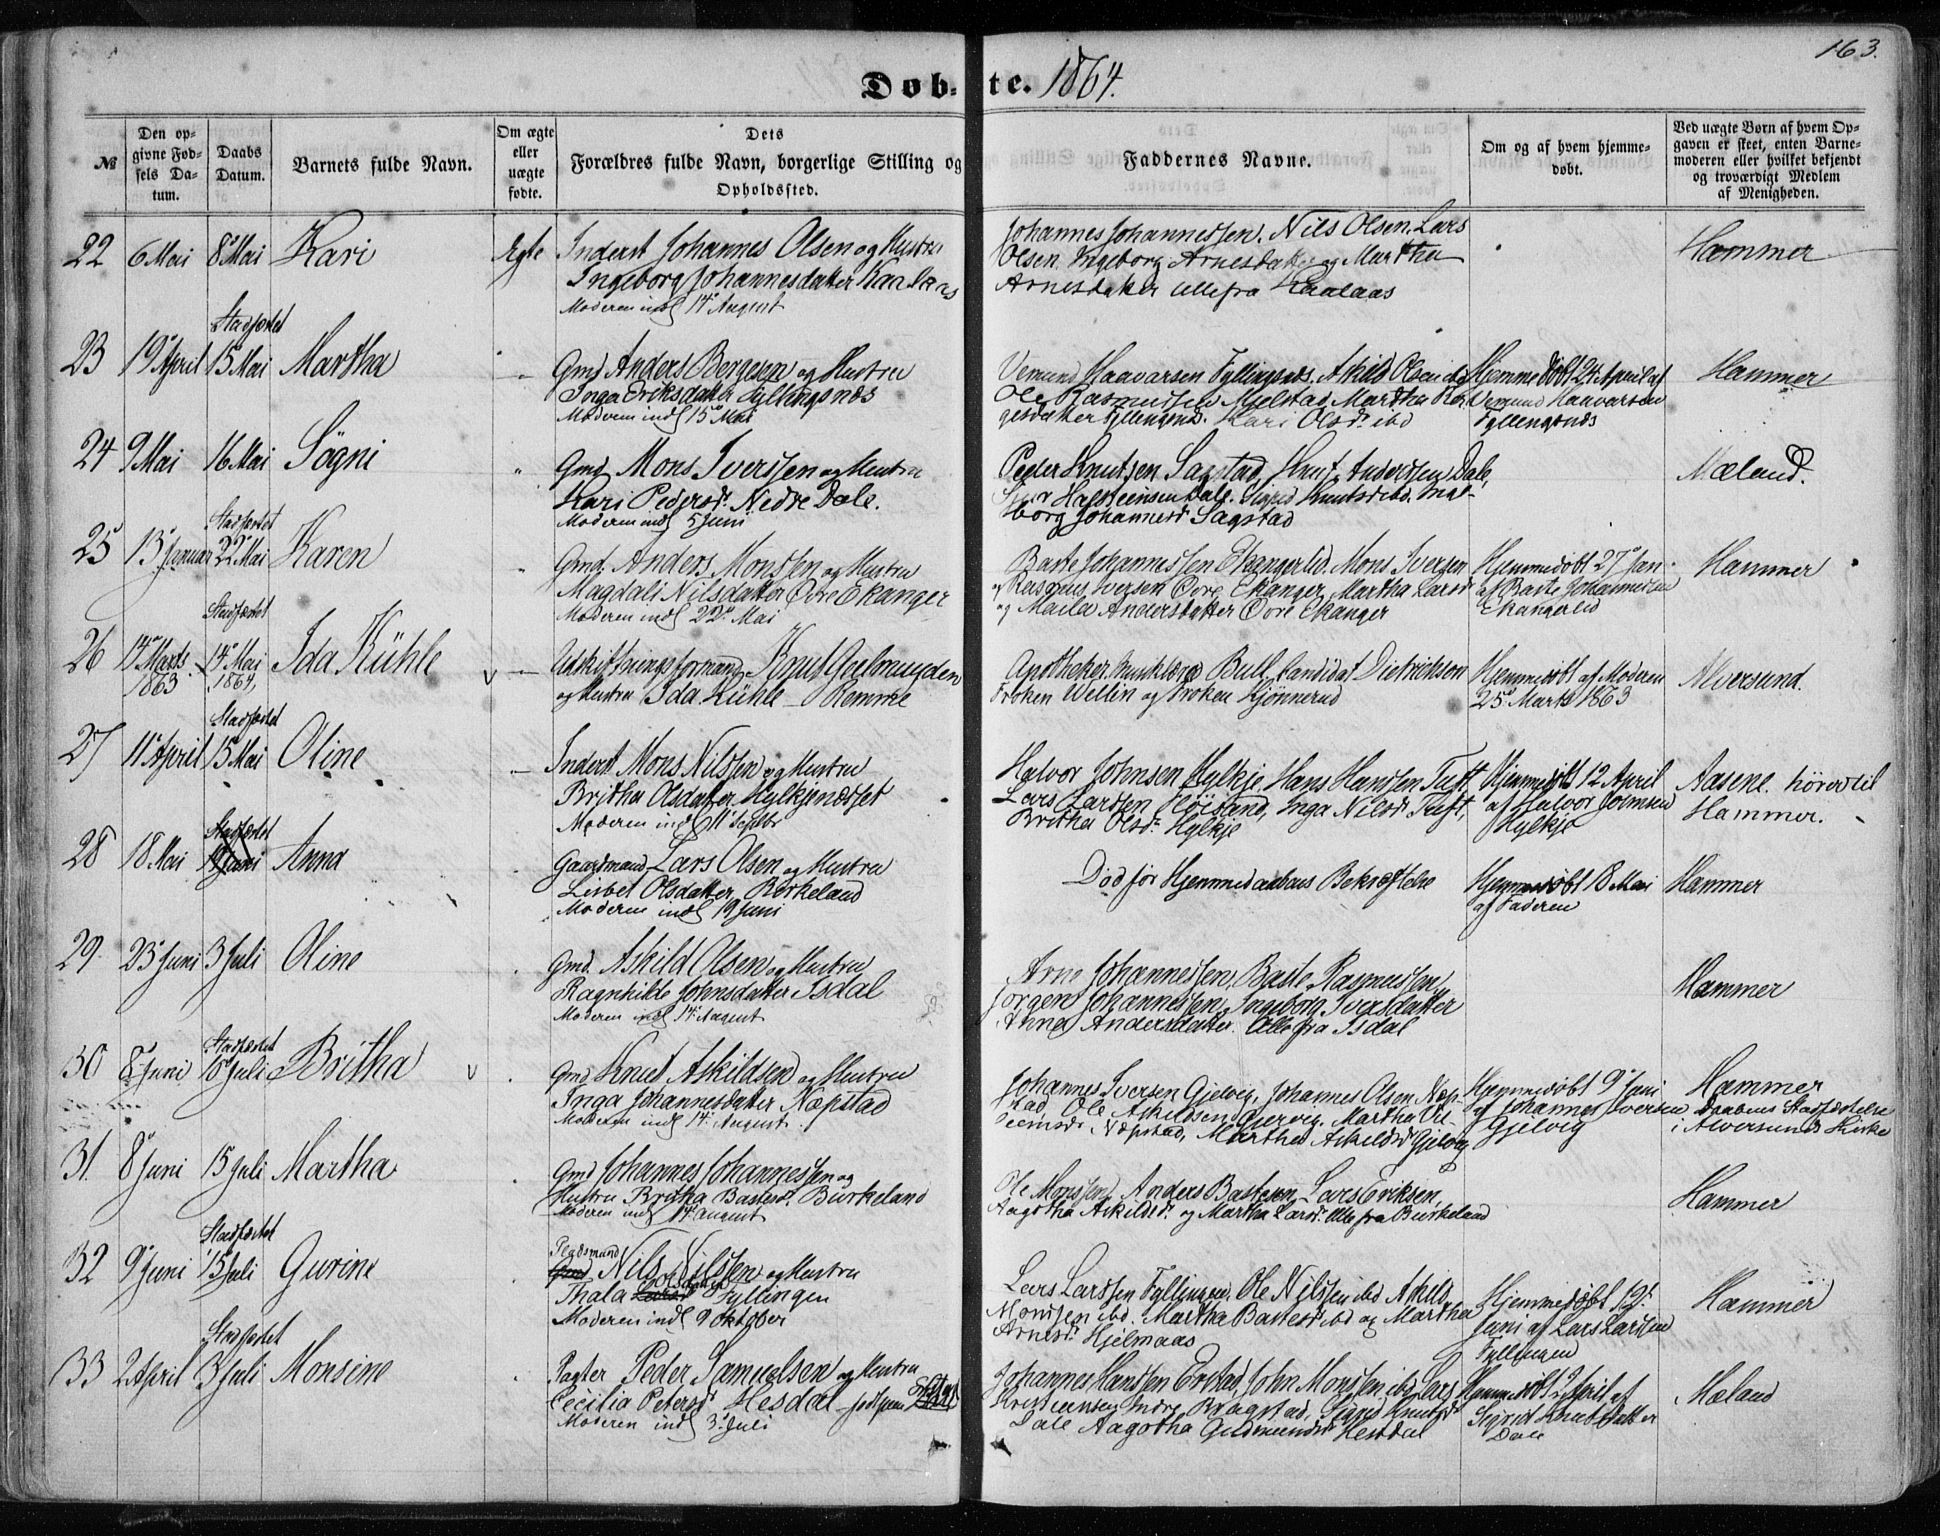 163.
Døb-te. 1864.
№
Den op-
givne Fød-
sels Da-
tum.
Daabs
Datum.
Barnets fulde Navn.
Om ægte
eller
uægte
fødte.
Dets
Forældres fulde Navn, borgerlige Stilling og
Opholdssted.
Faddernes Navne.
Om og af hvem hjemme-
døbt.
Ved uægte Børn af hvem Op-
gaven er skeet, enten Barne-
moderen eller hvilket bekjendt
og troværdigt Medlem
af Menigheden.
22 6 Mai 8 Mai Kari Ægte Inderst Johannes Olsen og Hustru
Ingeborg Johannesdatter
Moderen indl 14 August
Johannes Johannessen, Nils Olsen, Lars
Olsen, Ingeborg Arnesdatter og Martha
Arnesdatter alle fra Kaalaas
Hammer
23 19 April Stadfæstet 15 Mai Martha Gmd Anders Børgesen og Hustru
Inga Eriksdatter Fyllingsnæs
Moderen indl 15 Mai
Vemund Haavarsen Fyllingsnæs, Askild Olsen ibd
Ole Rasmussen Mjelstad, Martha Bør-
gesdatter Fyllingsnæs. Kari Olsdr ibd
Hjemmedøbt 24 April af
Vemund Haavarsen
Fyllingsnæs
Hammer
24 9 Mai 16 Mai Sögni Gmd Mons Iverssen og Hustru
Kari Pedersdr Nedre Dale.
Moderen indl 5 Juni
Peder Knutsen Sagstad, Knut Anderssen Dale,
Halsteensen Dale. Sigrid Knutsdr ibd. Inge-
borg Johannesdr Sagstad
Mæland.
25 13 Januar Stadfæstet 22 Mai Karen Gmd. Anders Monssen og Hustru
Magdali Nilsdatter Øvre Ekanger
Moderen indl 22 Mai
Baste Johannessen Ekangerlid. Mons Iversen
og Rasmus Iversen Øvre Ekanger, Martha Larsdr
og Andersdatter Øvre Ekanger
Hjemmedøbt 27 Jan
af Baste Johannessen
Ekangerlid
Hammer
26 14 Marts 1863 Stadfæstet 14 Mai 1864, Ida Kühle Udskiftningsformand Knut Geelmuyden
og Hustru Ida Kühle – Remme
Apotheker Bull, Candidat Dietrichson
Frøken Wellin og Frøken Hjønnerud
Hjemmedøbt af Moderen
25 Marts 1863
Alversund.
27 11 April Stadfæstet 15 Mai Oline Inderst Mons Nilssen og Hustru
Britha Olsdatter Hylkjenæsset
Moderen indl 11 Septbr
Halvor Johnsen Hylkje, Hans Hanssen Tuft,
Lars Larssen Høisand, Inga Nilsdr Tuft,
Britha Olsdr Hylkje
Hjemmedøbt 12 April
af Halvor Johnsen
Hylkje
Aasene hører til
Hammer.
28 18 Mai Stadfæstet Juni Anna Gaardmand Lars Olsen og Hustru
Lisbet Olsdatter Birkeland
Moderen indl 19 Juni
Død før Hjemmedaabens Bekræftelse
Hjemmedøbt 18 Mai
af Faderen
Hammer
29 23 Juni 3 Juli Oline Gmd. Askild Olsen og Hustru
Ragnhilde Johnsdatter Isdal
Moderen indl 14 August
Arne Johannessen, Baste Rasmussen,
Jørgen Johannessen, Ingeborg Iversdatter
Anna Andersdatter. Alle fra Isdal
Hammer
30 8 Juni Stadfæstet 10 Juli Britha Gmd Knut Askildsen og Hustru
Inga Johannesdatter Næpstad
Moderen indl 14 August.
Johannes Iversen Gjelvig, Johannes Olsen Næp-
stad, Ole Askildsen Gjervig. Martha
Næpstad, Martha Askildsdr Gjelvig
Hjemmedøbt 9 Juni
af Johannes Iversen
Gjelvig
Hammer
Daabens Stadfæstelse
i Alversunds Kirke
31. 8 Juni 15 Juli Martha Gmd Johannes Johannessen og
Hustru Britha Bastesdr Birkeland
Moderen indl 14 August
Ole Monssen, Anders Bastesen, Lars Eriksen,
Aagotha Askildsdr og Martha Larsdr alle fra Birkeland
Hammer
32 9 Juni Stadfæstet 15 Juli Gurine Pladsmand
Gmd Nils Nilssen og Hustru
Thala Larsdr Fyllingen
Moderen indl 9 Oktober
Lars Larssen Fyllingen, Ole Nilssen ibd Askild
Monssen ibd. Martha Bastesdr ibd og Martha
Arnesdr Hjelmaas
Hjemmedøbt 12
Juni af Lars Larssen
Fyllingen
Hammer
33 2 April Stadfæstet 3 Juli Monsine Pagter Peder Samuelsen og Hustru
Cecilia Petersdr Hesdal
Moderen indl 3 Juli
Johannes Hanssen Evstad, John Monssen ibd, Lars
Indre Bragstad, Sigrid Knutsdr
Dale Aagotha Gudmundsdr Hesdal
Hjemmedøbt 2 April af
Sigrid Knutsdatter
Dale
Mæland